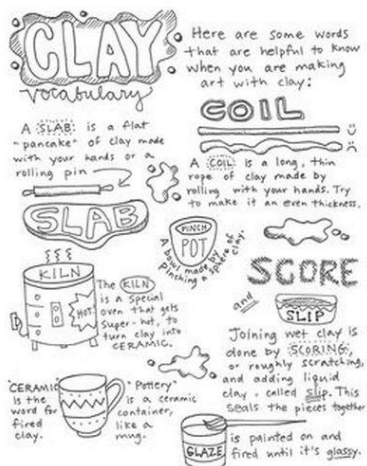 CLAY
vocabulary
Here are some words
that are helpful to know
when you are making
art with clay:
A SLAB is a flat
"pancake" of clay made
with your hands or a
rolling pin
SLAB
COIL
A COIL is a long, thin
rope of clay made by
rolling with your hands. Try
to make it an even thickness.
PINCH
POT
A bowl made by
pinching a sphere of
clay.
KILN
HOT!
The KILN
is a special
oven that gets
super-hot, to
turn clay into
CERAMIC.
SCORE
and
SLIP
Joining wet clay is
done by SCORING,
or roughly scratching,
and adding liquid
clay, called slip. This
seals the pieces together
"CERAMIC"
is the
word for
fired
clay.
"Pottery"
is a ceramic
container,
like a
mug.
GLAZE
is painted on and
fired until it's glassy.